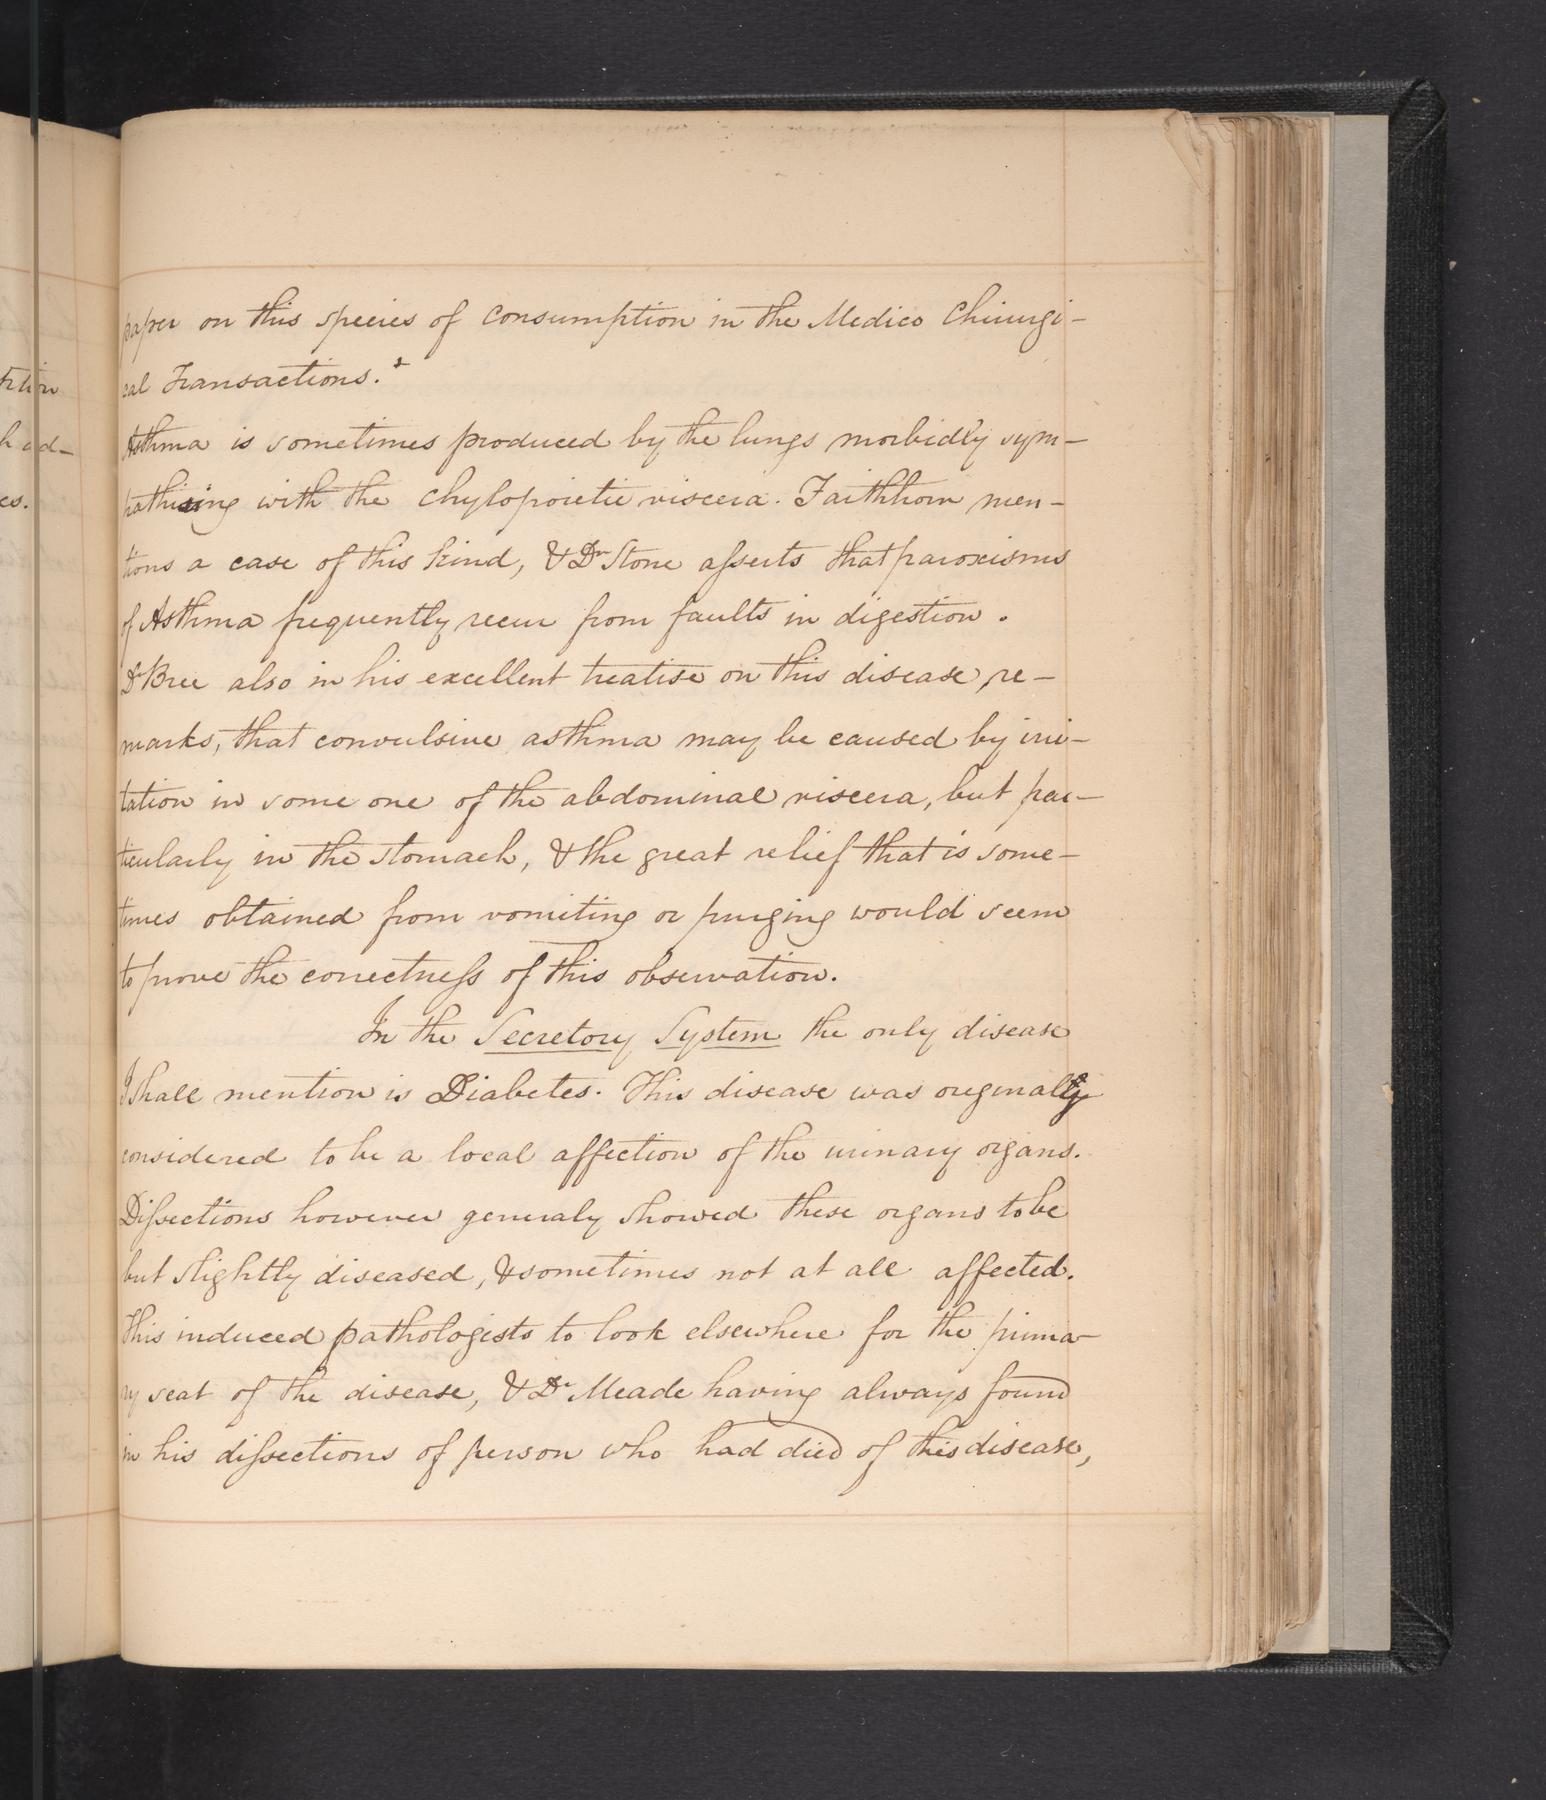 paper on this species of consumption in the Medico Chirurgi-
cal Transactions.
Asthma is sometimes produced by the lungs morbidly sym-
pathising with the chylopoietic viscera. Faithhorn men-
tions a case of this kind, & Dr Stone asserts that paroxisms
of Asthma frequently recur from faults in digestion.
Dr Bree also in his excellent treatise on this disease, re-
marks, that convulsive asthma may be caused by irri-
tation in some one of the abdominal viscera, but par-
ticularly in the stomach, & the great relief that is some-
times obtained from vomiting or purging would seem
to prove the correctness of this observation.
In the Secretory System the only disease
I shall mention is Diabetes. This disease was originally
considered to be a local affection of the urinary organs.
Dissections however generaly showed these organs to be
but slightly diseased, & sometimes not at all affected.
This induced pathologists to look elsewhere for the prima-
ry seat of the disease, & Dr Meade having always found
in his dissections of person who had died of this disease,